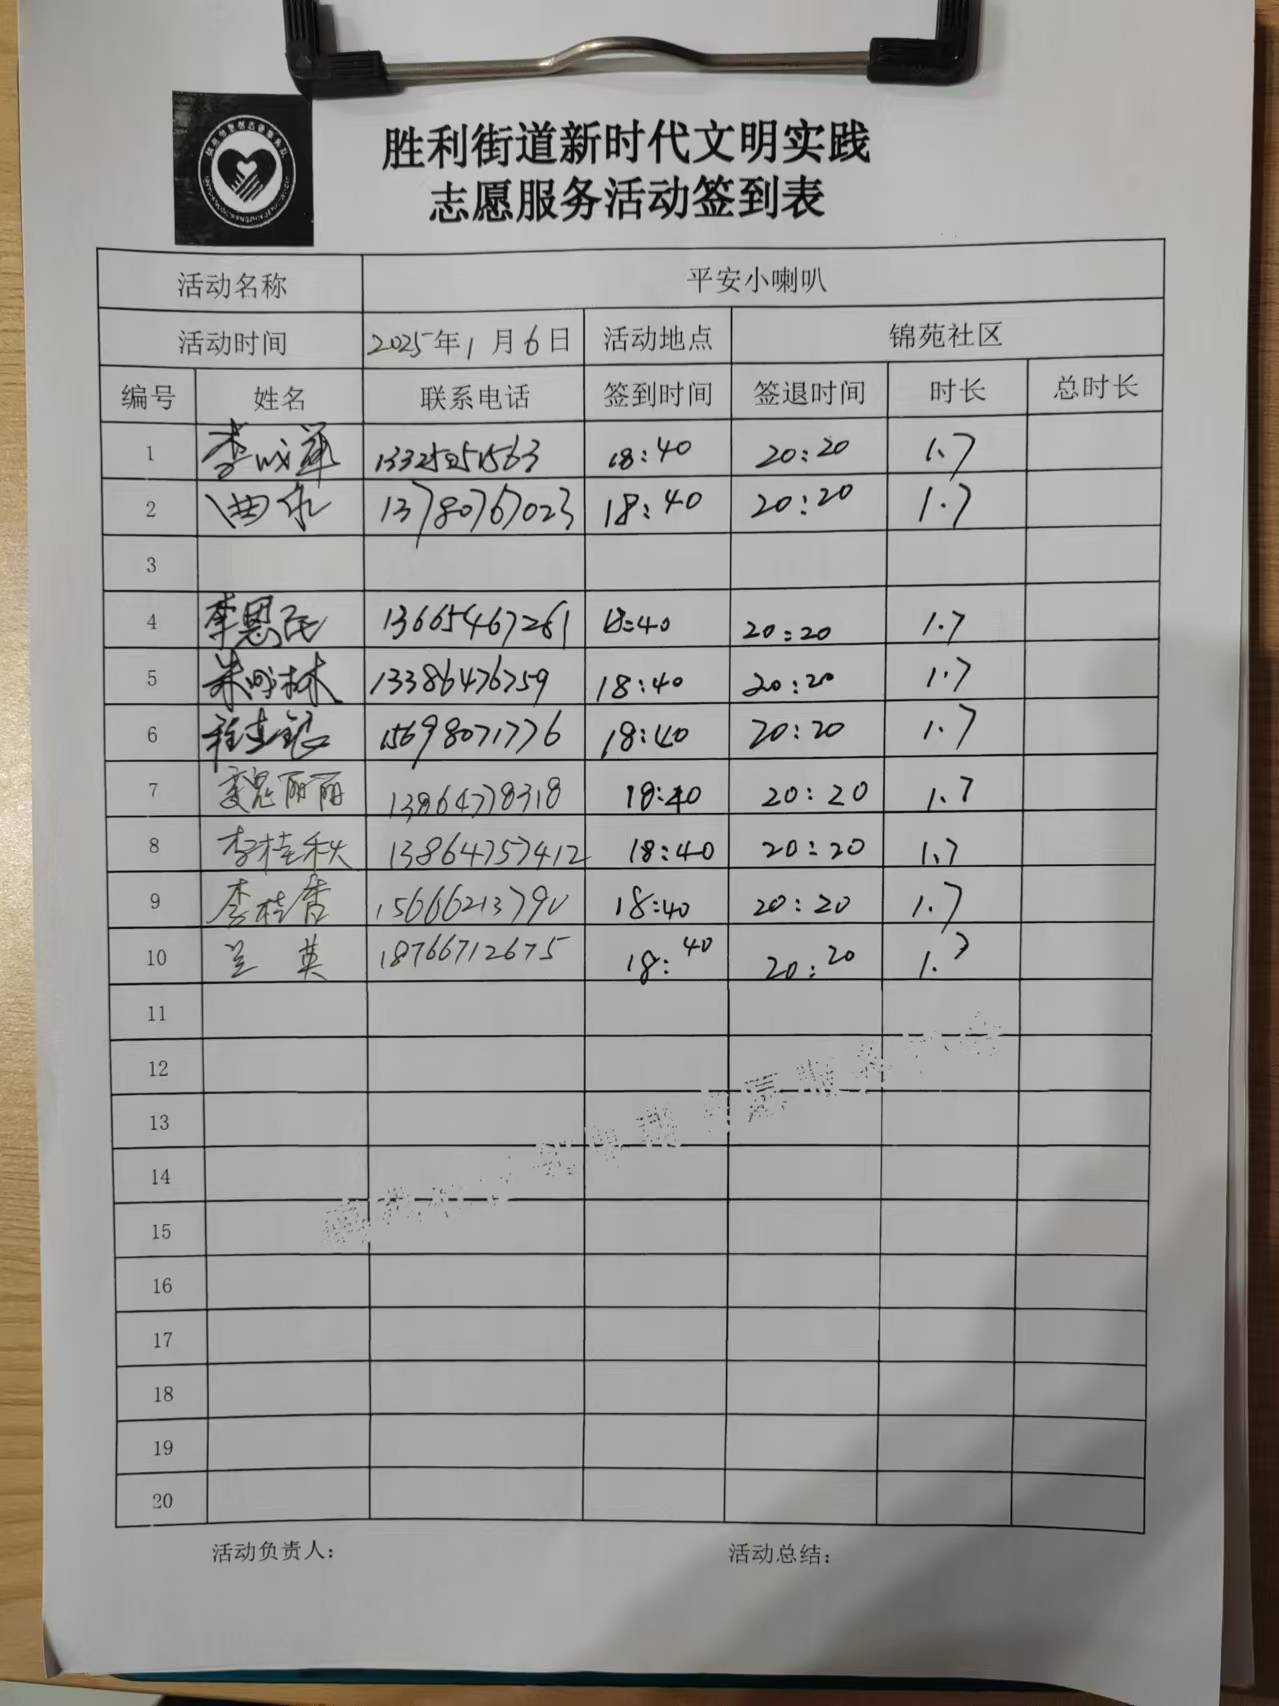 胜利街道新时代文明实践
志愿服务活动签到表
活动名称 平安小喇叭
活动时间 2025年1月6日 活动地点 锦苑社区
编号 姓名 联系电话 签到时间 签退时间 时长 总时长
1 李成 13325251563 18:40 20:20 1.7
2 曲 13780767023 18:40 20:20 1.7
3
4 李恩民 13665467261 18:40 20:20 1.7
5 朱 林 13386476759 18:40 20:20 1.7
6 程 15698071776 18:40 20:20 1.7
7 丽丽 13864778318 18:40 20:20 1.7
8 李桂秋 13864757412 18:40 20:20 1.7
9 李桂香 15666213790 18:40 20:20 1.7
10 兰英 18766712675 18:40 20:20 1.7
11
12
13
14
15
16
17
18
19
20
活动负责人: 活动总结: